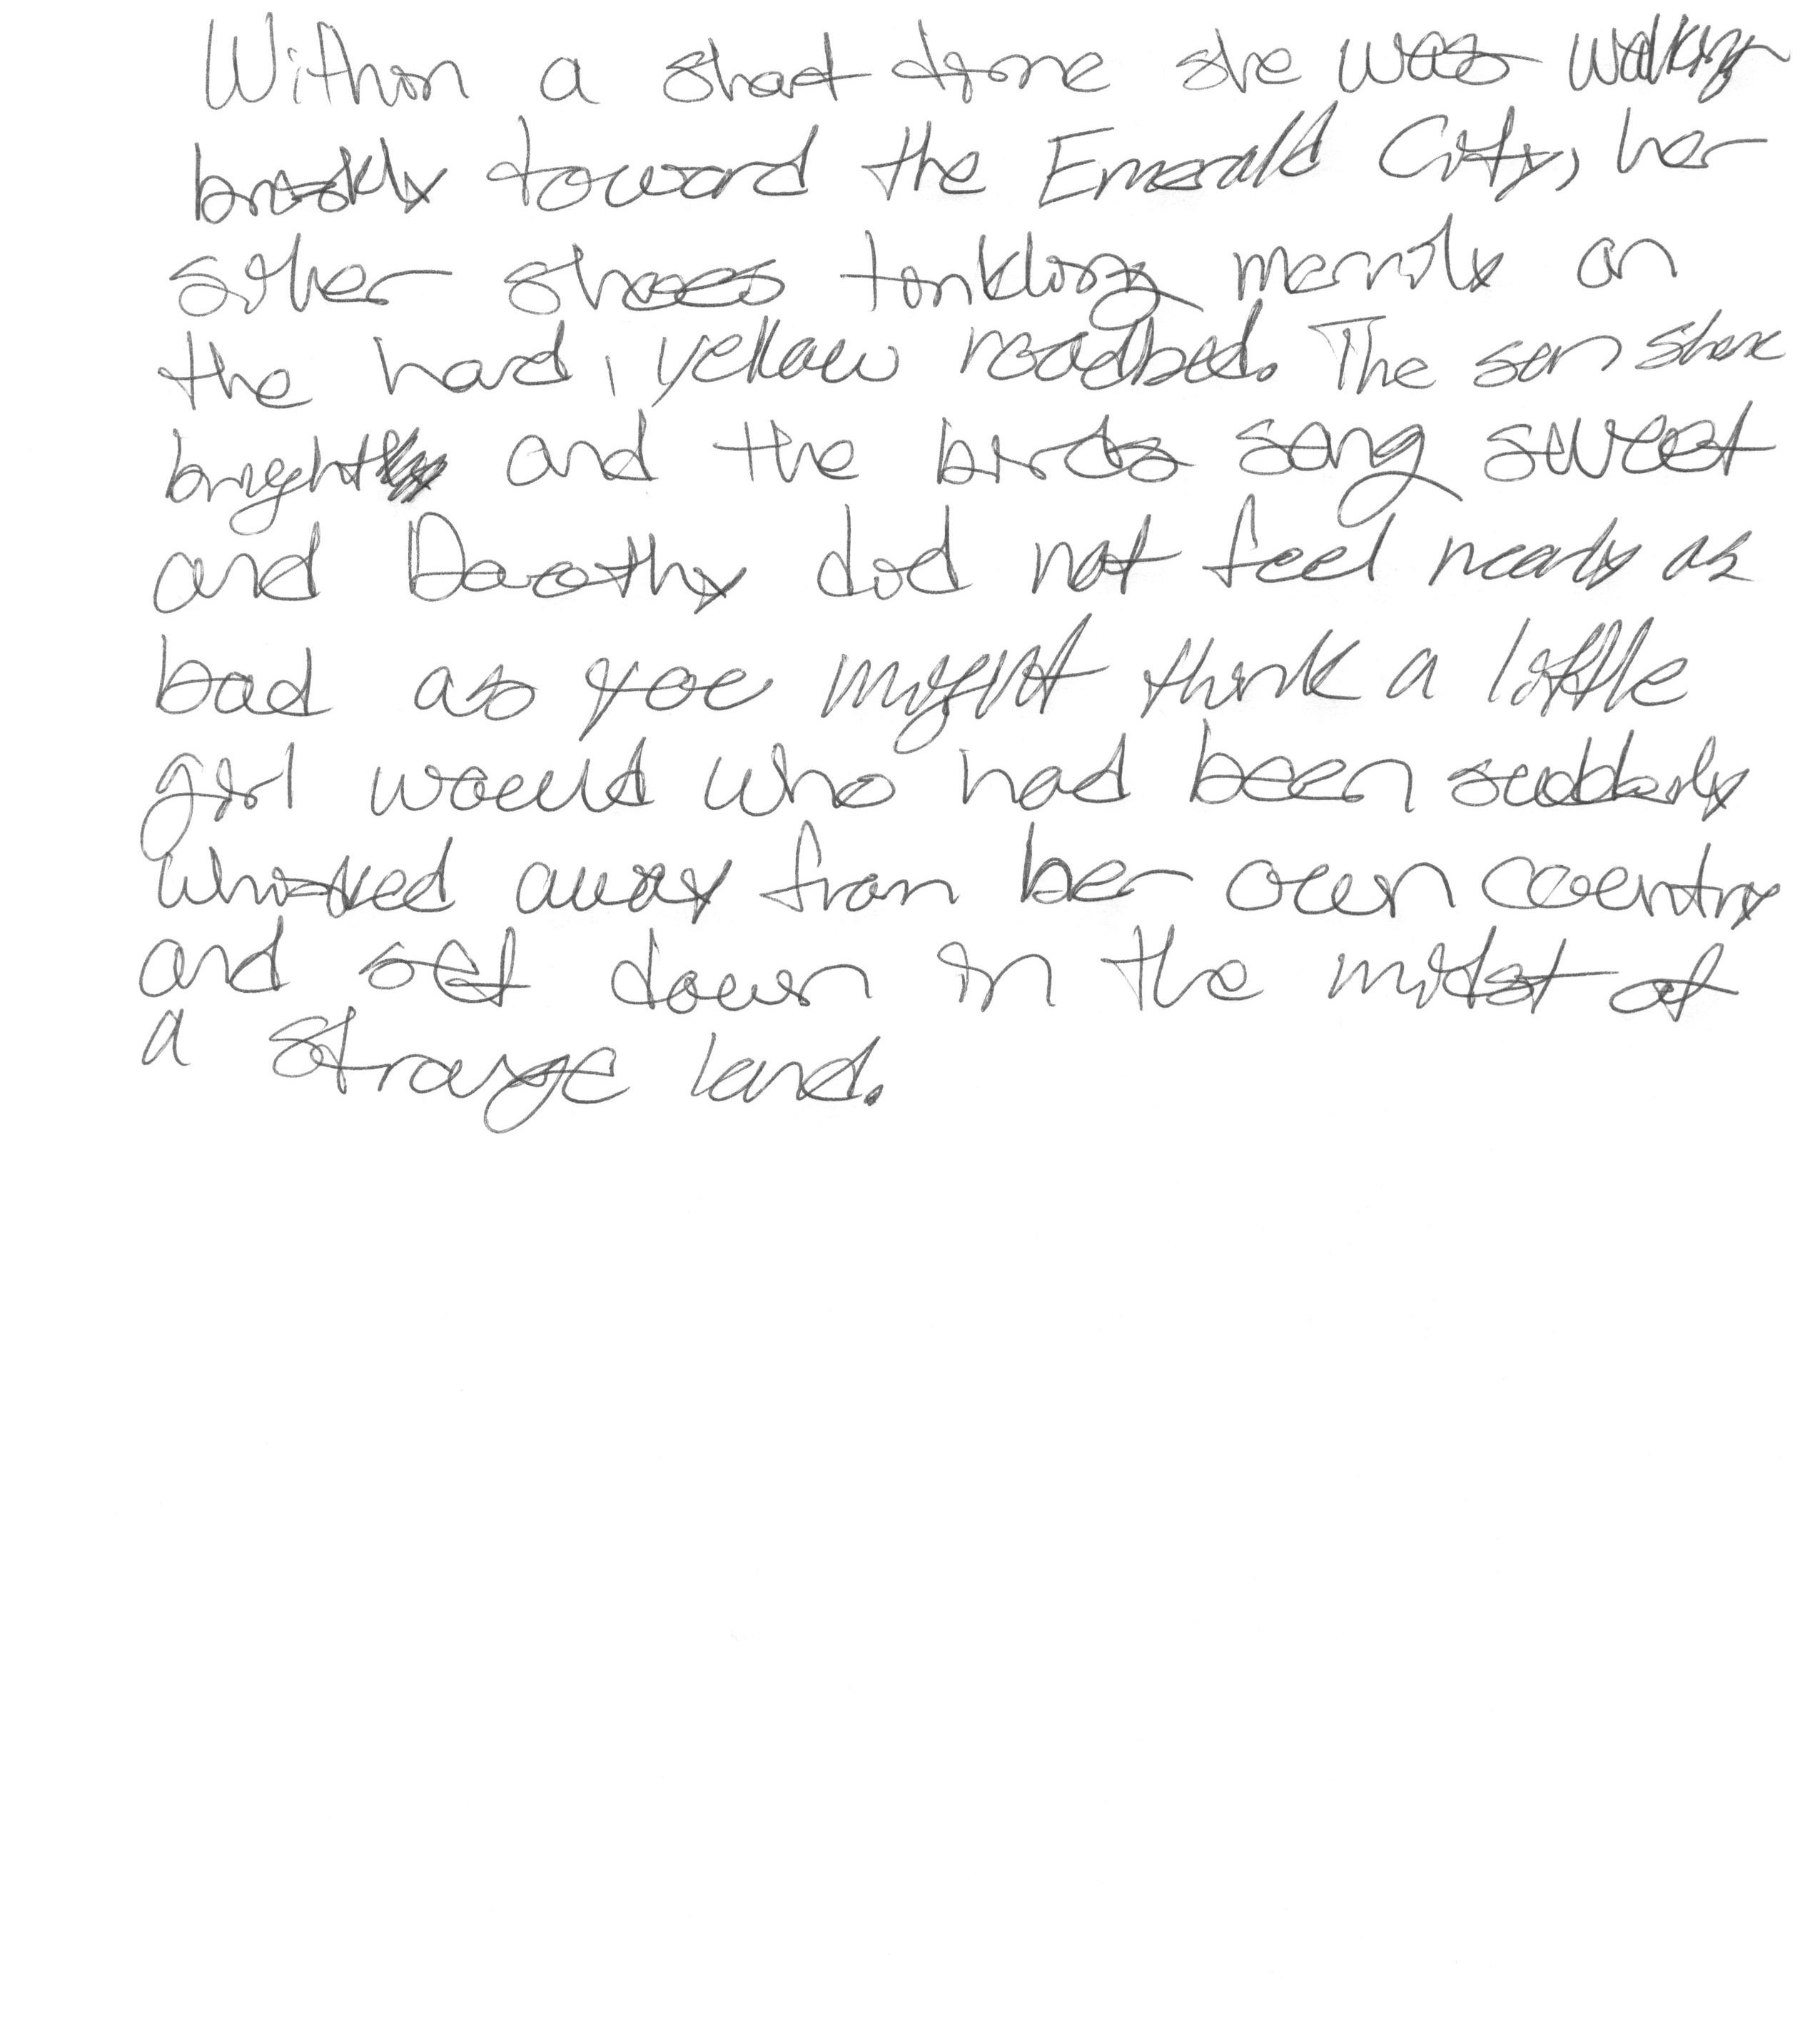 Within a short time she was walking
briskly toward the Emerald City, her
silver shoes tinkling merrily on
the hard, yellow roadbed. The sun shone
bright and the birds sang sweet
and Dorothy did not feel nearly as
bad as you might think a little
girl would who had been suddenly
whisked away from her own country
and set down in the midst of
a strange land.